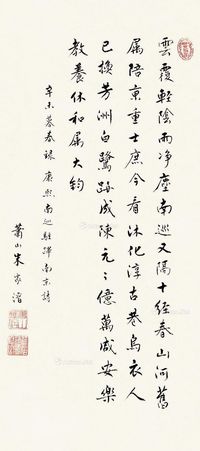 雲覆輕陰雨淨塵南巡又隔十經春山河舊
屬陪京重士庶今看沐化淳古巷烏衣人
已換芳洲白鷺跡成陳元元億萬咸安樂
教養休和屬大鈞
辛未暮春錄康熙南巡駐蹕南京詩
蕭山朱家溍